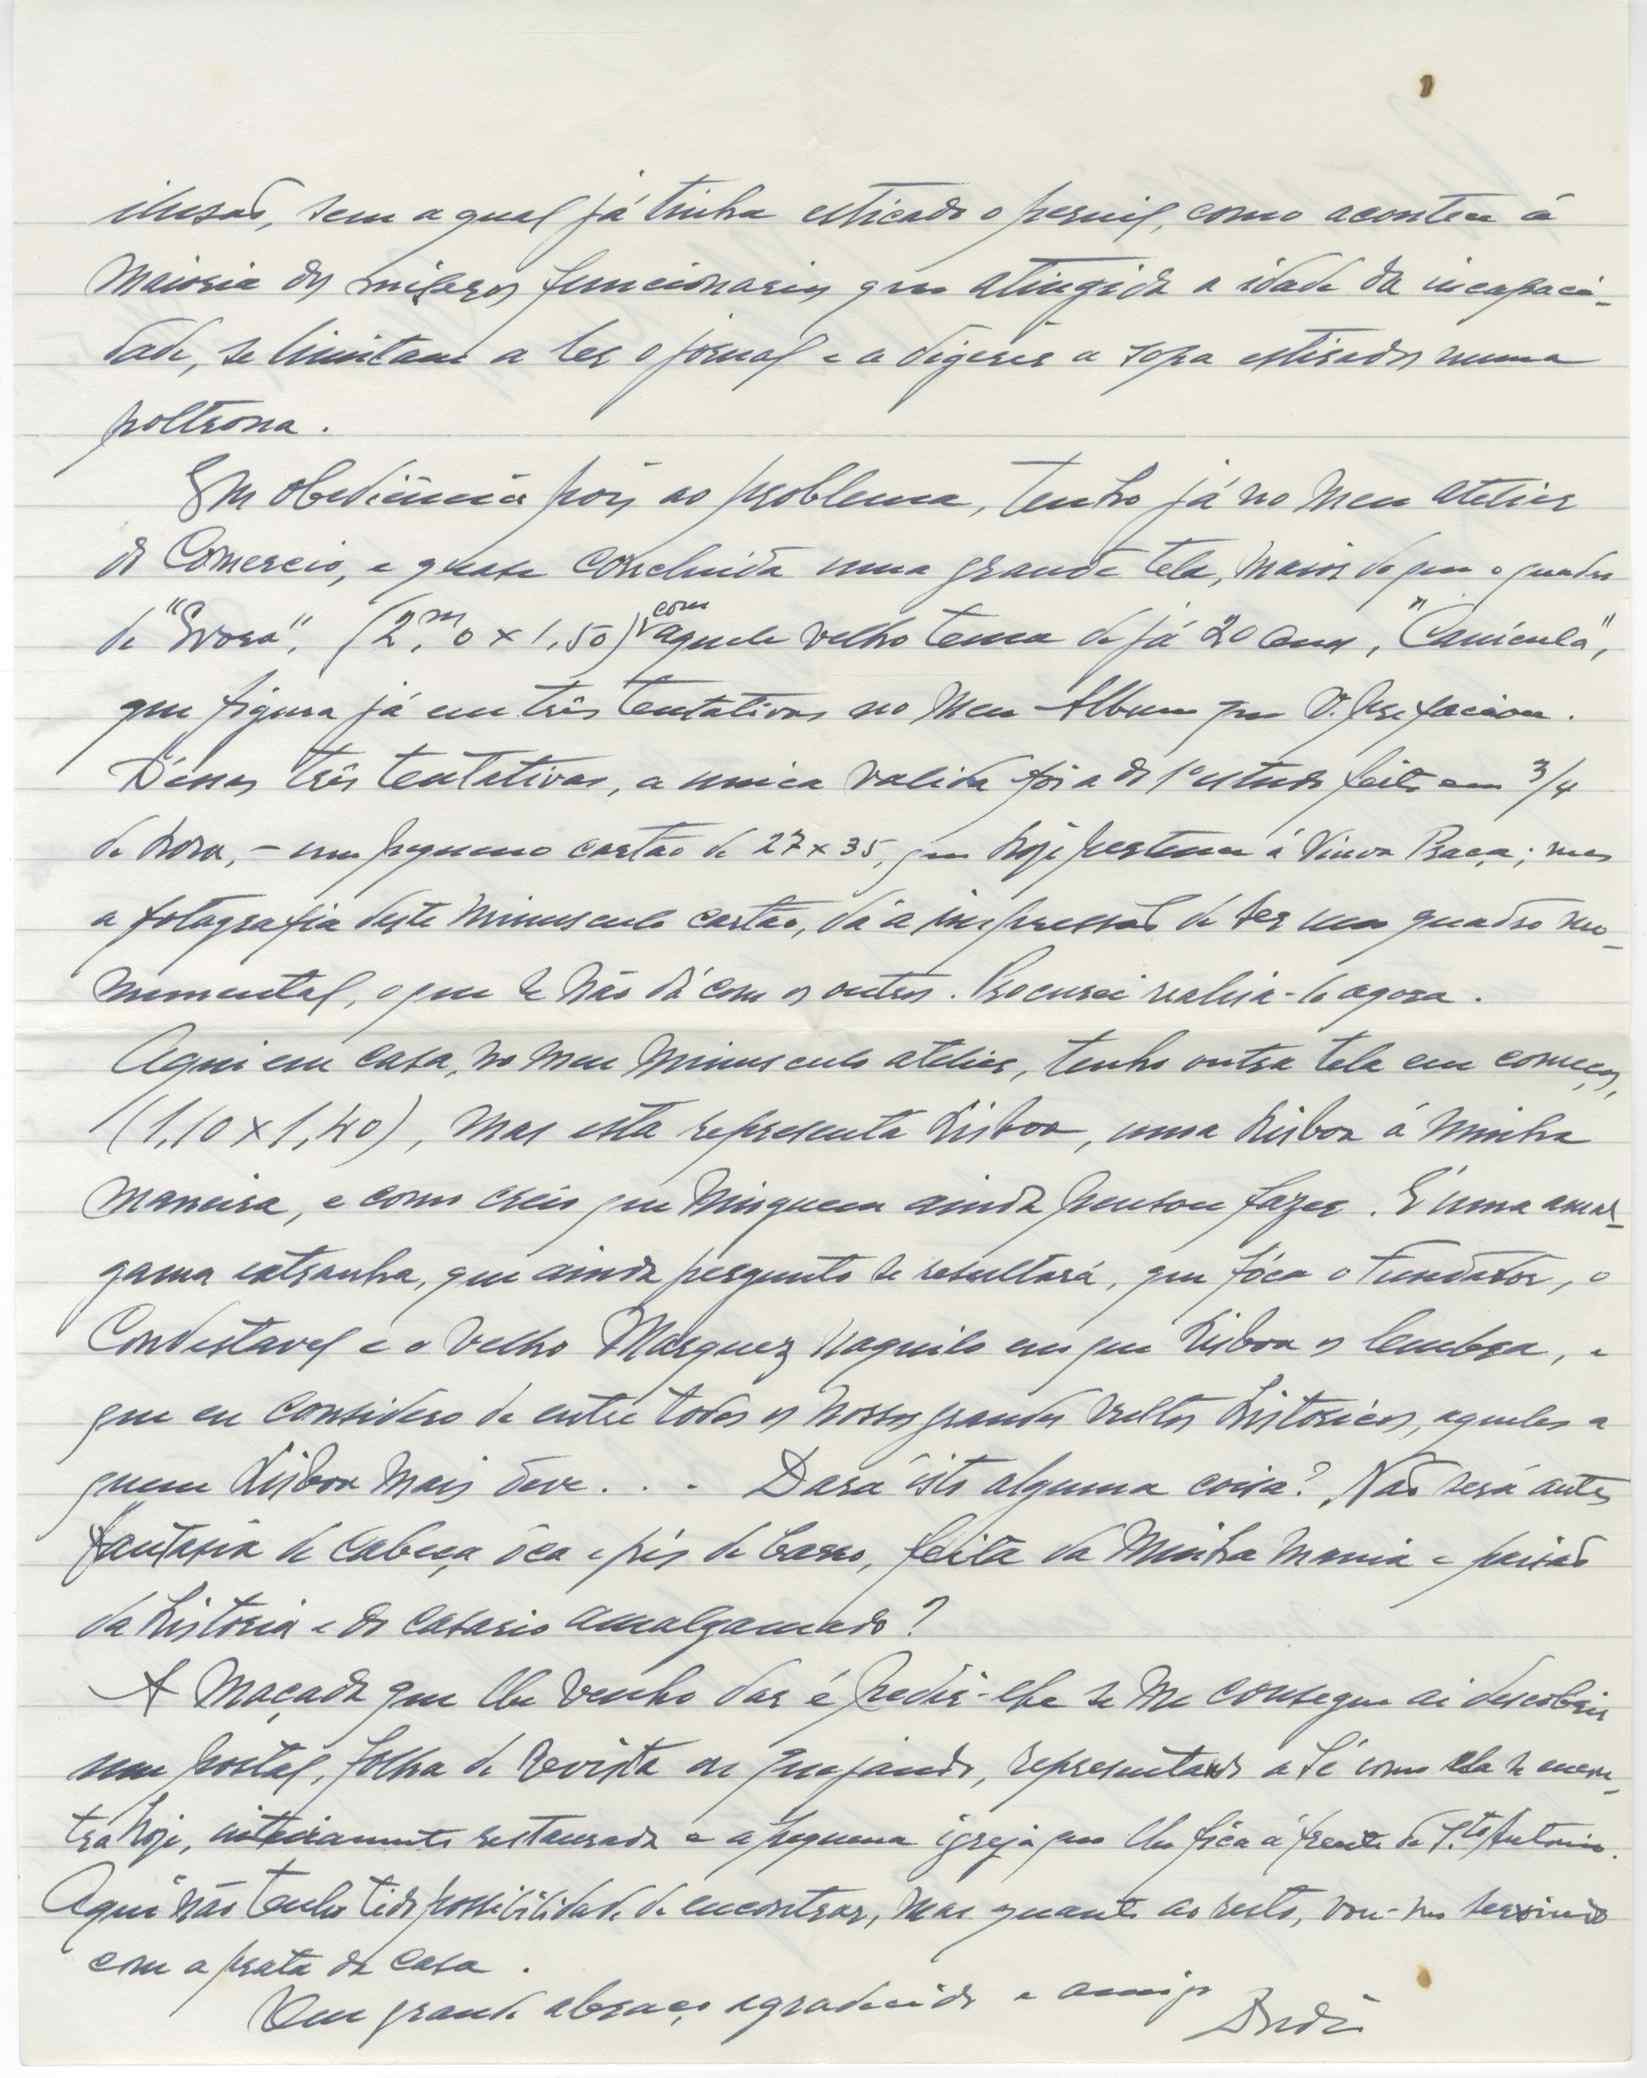 ilusão, sem a qual já tinha esticado o pernil, como acontece á
maioria dos míseros funcionarios que atingida a idade da incapaci-
dade, se limitam a ler o jornal e a digerir a sopa estirados numa
poltrona.
Em obediência pois ao problema, tenho já no meu atelier
do Comercio, e quase concluida uma grande tela, maior do que o quadro
de "Evora", (2,m0 x 1,50) com aquele velho tema de já 20 anos, "Canícula",
que figura já em três tentativas no meu Album que V. prefaciou.
Dessas três tentativas, a unica valida foi a do 1º estudo feito em 3/4
de hora, - um pequeno cartão de 27 x 35, que hoje pertence á Viuva Braga; mas
a fotografia deste minusculo cartão, dá a impressão de ser um quadro mo-
numental, o que se não dá com os outros. Procurei realisa-lo agora.
Aqui em casa, no meu minusculo atelier, tenho outra tela em começo,
(1,10 x 1,40), mas esta representa Lisboa, uma Lisboa á minha
maneira, e como creio que ninguem ainda pensou fazer. É uma amal-
gama extranha, que ainda pergunto se resultará, que fóca o Fundador, o
Condestavel e o velho Marquez naquilo em que Lisboa os lembra, e
que eu considero de entre todos os nossos grandes vultos historicos, aqueles a
quem Lisboa mais deve... Dará isto alguma coisa? Não será antes
fantasia de cabeça ôca e pés de barro, feita da minha mania e paixão
da historia e do casario amalgamado?
A maçada que lhe venho dar é pedir-lhe se me consegue aí descobrir
um postal, folha de revista ou quejando, representando a Sé como ela se encon-
tra hoje, inteiramente restaurada e a pequena igreja que lhe fica á frente de S.to Antonio.
Aqui não tenho tido possibilidade de encontrar, mas quanto ao resto, vou-me servindo
com a prata da casa.
Um grande abraço, agradecido e amigo